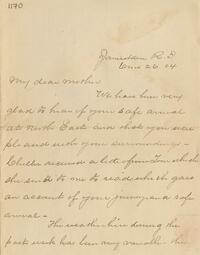 1170
Jamestown R.I.
26.04
My dear mother
We have been very
glad to hear of your safe arrival
at North East and that you were
pleased with your surroundings -
received a letter from Tom which
she sent to me to read which gave
an account of your journey and safe
arrival -
The weather here during the
past week has been very variable - the